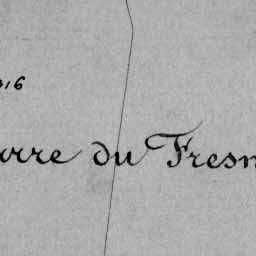 316
erre du Fresn